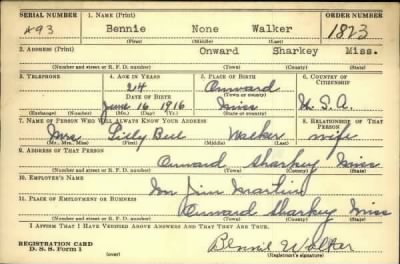 SERIAL NUMBER 1. NAME (Print) ORDER NUMBER
493 Bennie None Walker 1823
(First) (Middle) (Last)
2. ADDRESS (Print)
Onward Sharkey Miss.
(Number and street or R. F. D. number) (Town) (County) (State)
3. TELEPHONE 4. AGE IN YEARS 5. PLACE OF BIRTH 6. COUNTRY OF CITIZENSHIP
24 Onward
DATE OF BIRTH (Town or county)
June 16 1916 Miss U. S. A.
(Exchange) (Number) (Mo.) (Day) (Yr.) (State or country)
7. NAME OF PERSON WHO WILL ALWAYS KNOW YOUR ADDRESS 8. RELATIONSHIP OF THAT PERSON
Mrs Walker wife
(Mr., Mrs., Miss) (First) (Middle) (Last)
9. ADDRESS OF THAT PERSON
Onward Sharkey Miss
(Number and street or R. F. D. number) (Town) (County) (State)
10. EMPLOYER'S NAME
Jim Martin
11. PLACE OF EMPLOYMENT OR BUSINESS
Onward Sharkey Miss
(Number and street or R. F. D. number) (Town) (County) (State)
I AFFIRM THAT I HAVE VERIFIED ABOVE ANSWERS AND THAT THEY ARE TRUE.
REGISTRATION CARD
D. S. S. Form 1 Bennie Walker
(Registrant's signature)